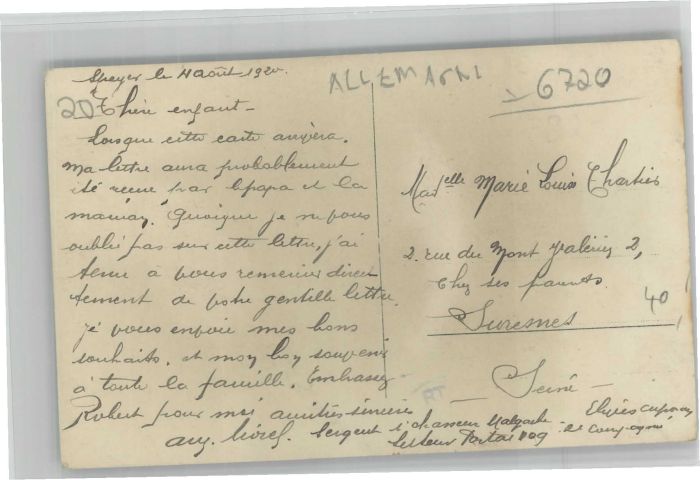 Speyer le 4 août 1920.
ALLEMAGNE
6720
20
Chère enfant -
Lorsque cette carte arrivera,
ma lettre aura probablement
été reçue par le papa et la
maman. Quoique je ne vous
oublie pas sur cette lettre, j'ai
tenu à vous remercier direc
tement de votre gentille lettre.
je vous envoie mes bons
souhaits, et mon bon souvenir
à toute la famille. Embrassez
Robert pour moi amitiés sincères
Sergent 1er chasseur Malgache
Secteur Postal 109
Elle Marie Louise Chartier
2, rue du Mont Valérien 2,
Chez ses parents
Suresnes
40
- Seine -